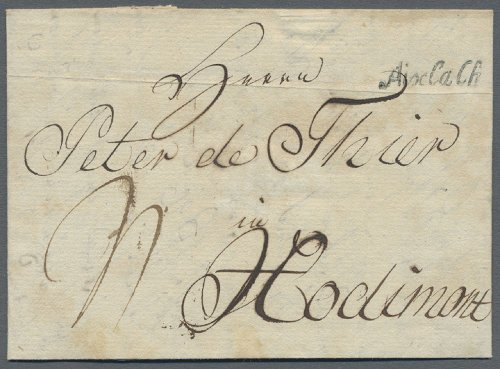 Aixlach
Herrn
Peter de Thier
in
Hodimont